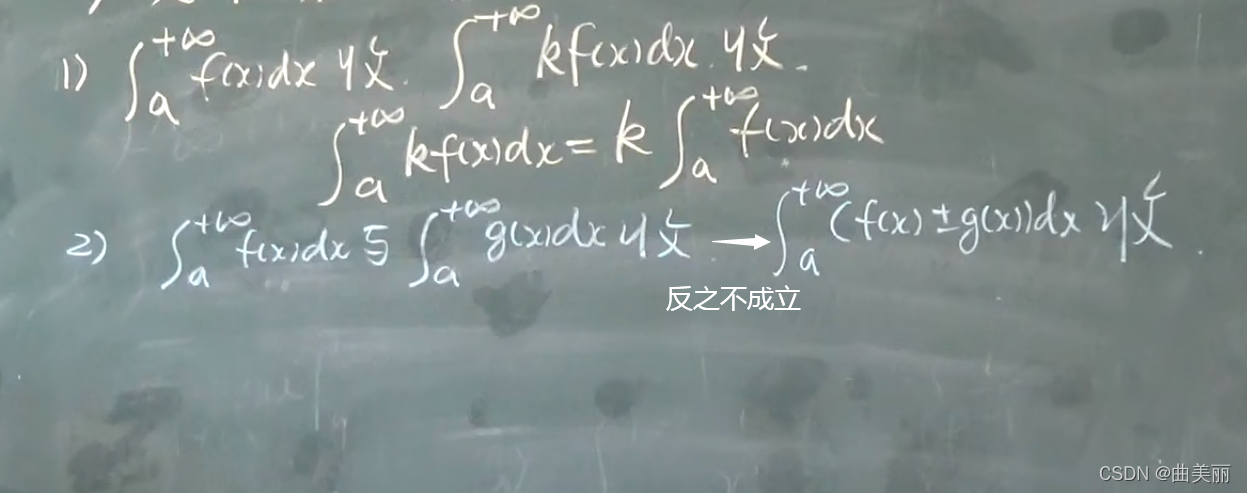 1) ∫_a^{+∞} f(x)dx 收. ∫_a^{+∞} kf(x)dx. 收.
∫_a^{+∞} kf(x)dx = k ∫_a^{+∞} f(x)dx
2) ∫_a^{+∞} f(x)dx 与 ∫_a^{+∞} g(x)dx 收 → ∫_a^{+∞} (f(x) ± g(x))dx 收.
反之不成立
CSDN @曲美丽